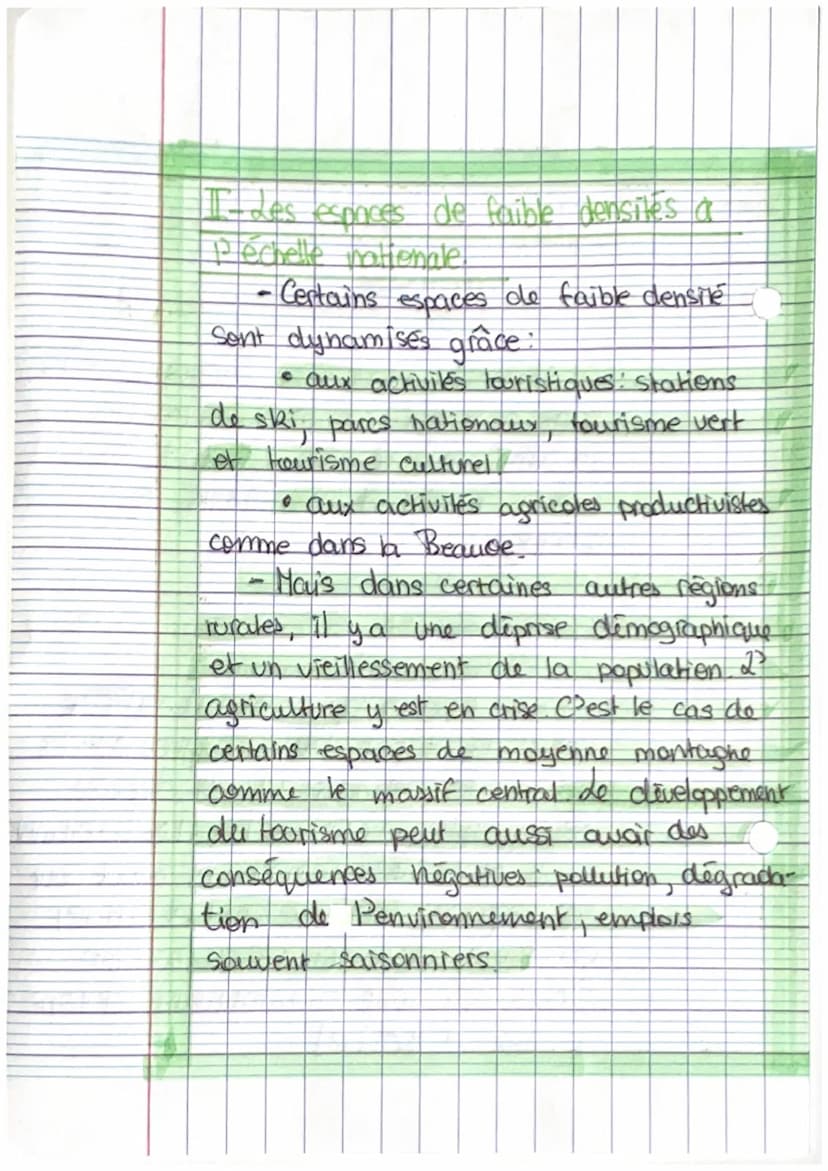 II- Les espaces de faible densités à
l'échelle nationale.
- Certains espaces de faible densité
sont dynamisés grâce :
• aux activités touristiques : stations
de ski, parcs nationaux, tourisme vert
et tourisme culturel.
• aux activités agricoles productivistes
comme dans la Beauce.
- Mais dans certaines autres régions
rurales, il y a une déprise démographique
et un vieillessement de la population. L'
agriculture y est en crise. C'est le cas de
certains espaces de moyenne montagne
comme le massif central. Le développement
du tourisme peut aussi avoir des
conséquences négatives : pollution, dégrada-
tion de l'environnement, emplois
souvent saisonniers.